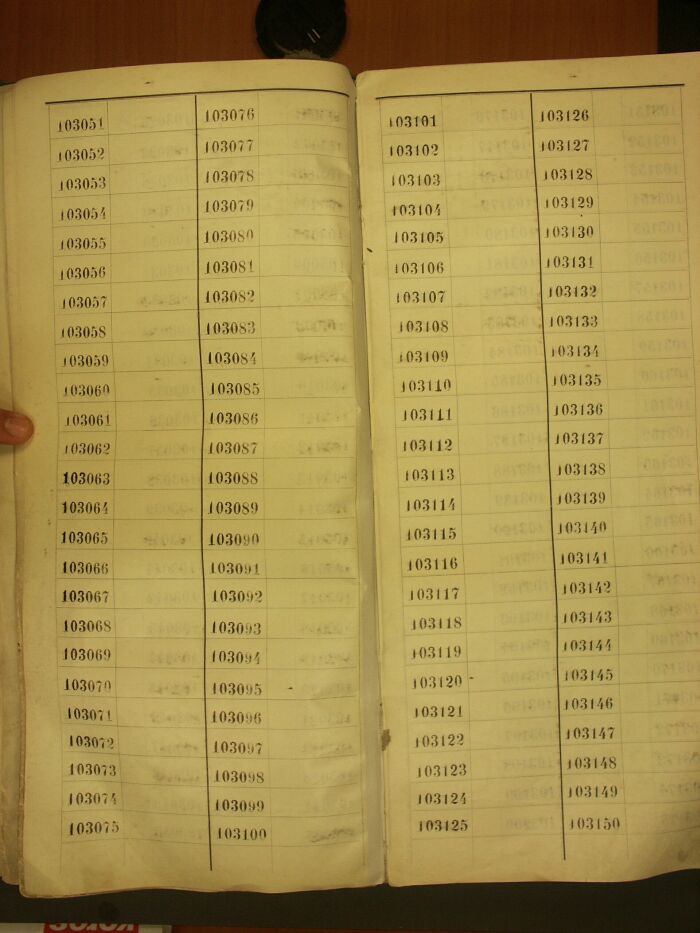 103051
103052
103053
103054
103055
103056
103057
103058
103059
103060
103061
103062
103063
103064
103065
103066
103067
103068
103069
103070
103071
103072
103073
103074
103075
103076
103077
103078
103079
103080
103081
103082
103083
103084
103085
103086
103087
103088
103089
103090
103091
103092
103093
103094
103095
103096
103097
103098
103099
103100
103101
103102
103103
103104
103105
103106
103107
103108
103109
103110
103111
103112
103113
103114
103115
103116
103117
103118
103119
103120
103121
103122
103123
103124
103125
103126
103127
103128
103129
103130
103131
103132
103133
103134
103135
103136
103137
103138
103139
103140
103141
103142
103143
103144
103145
103146
103147
103148
103149
103150